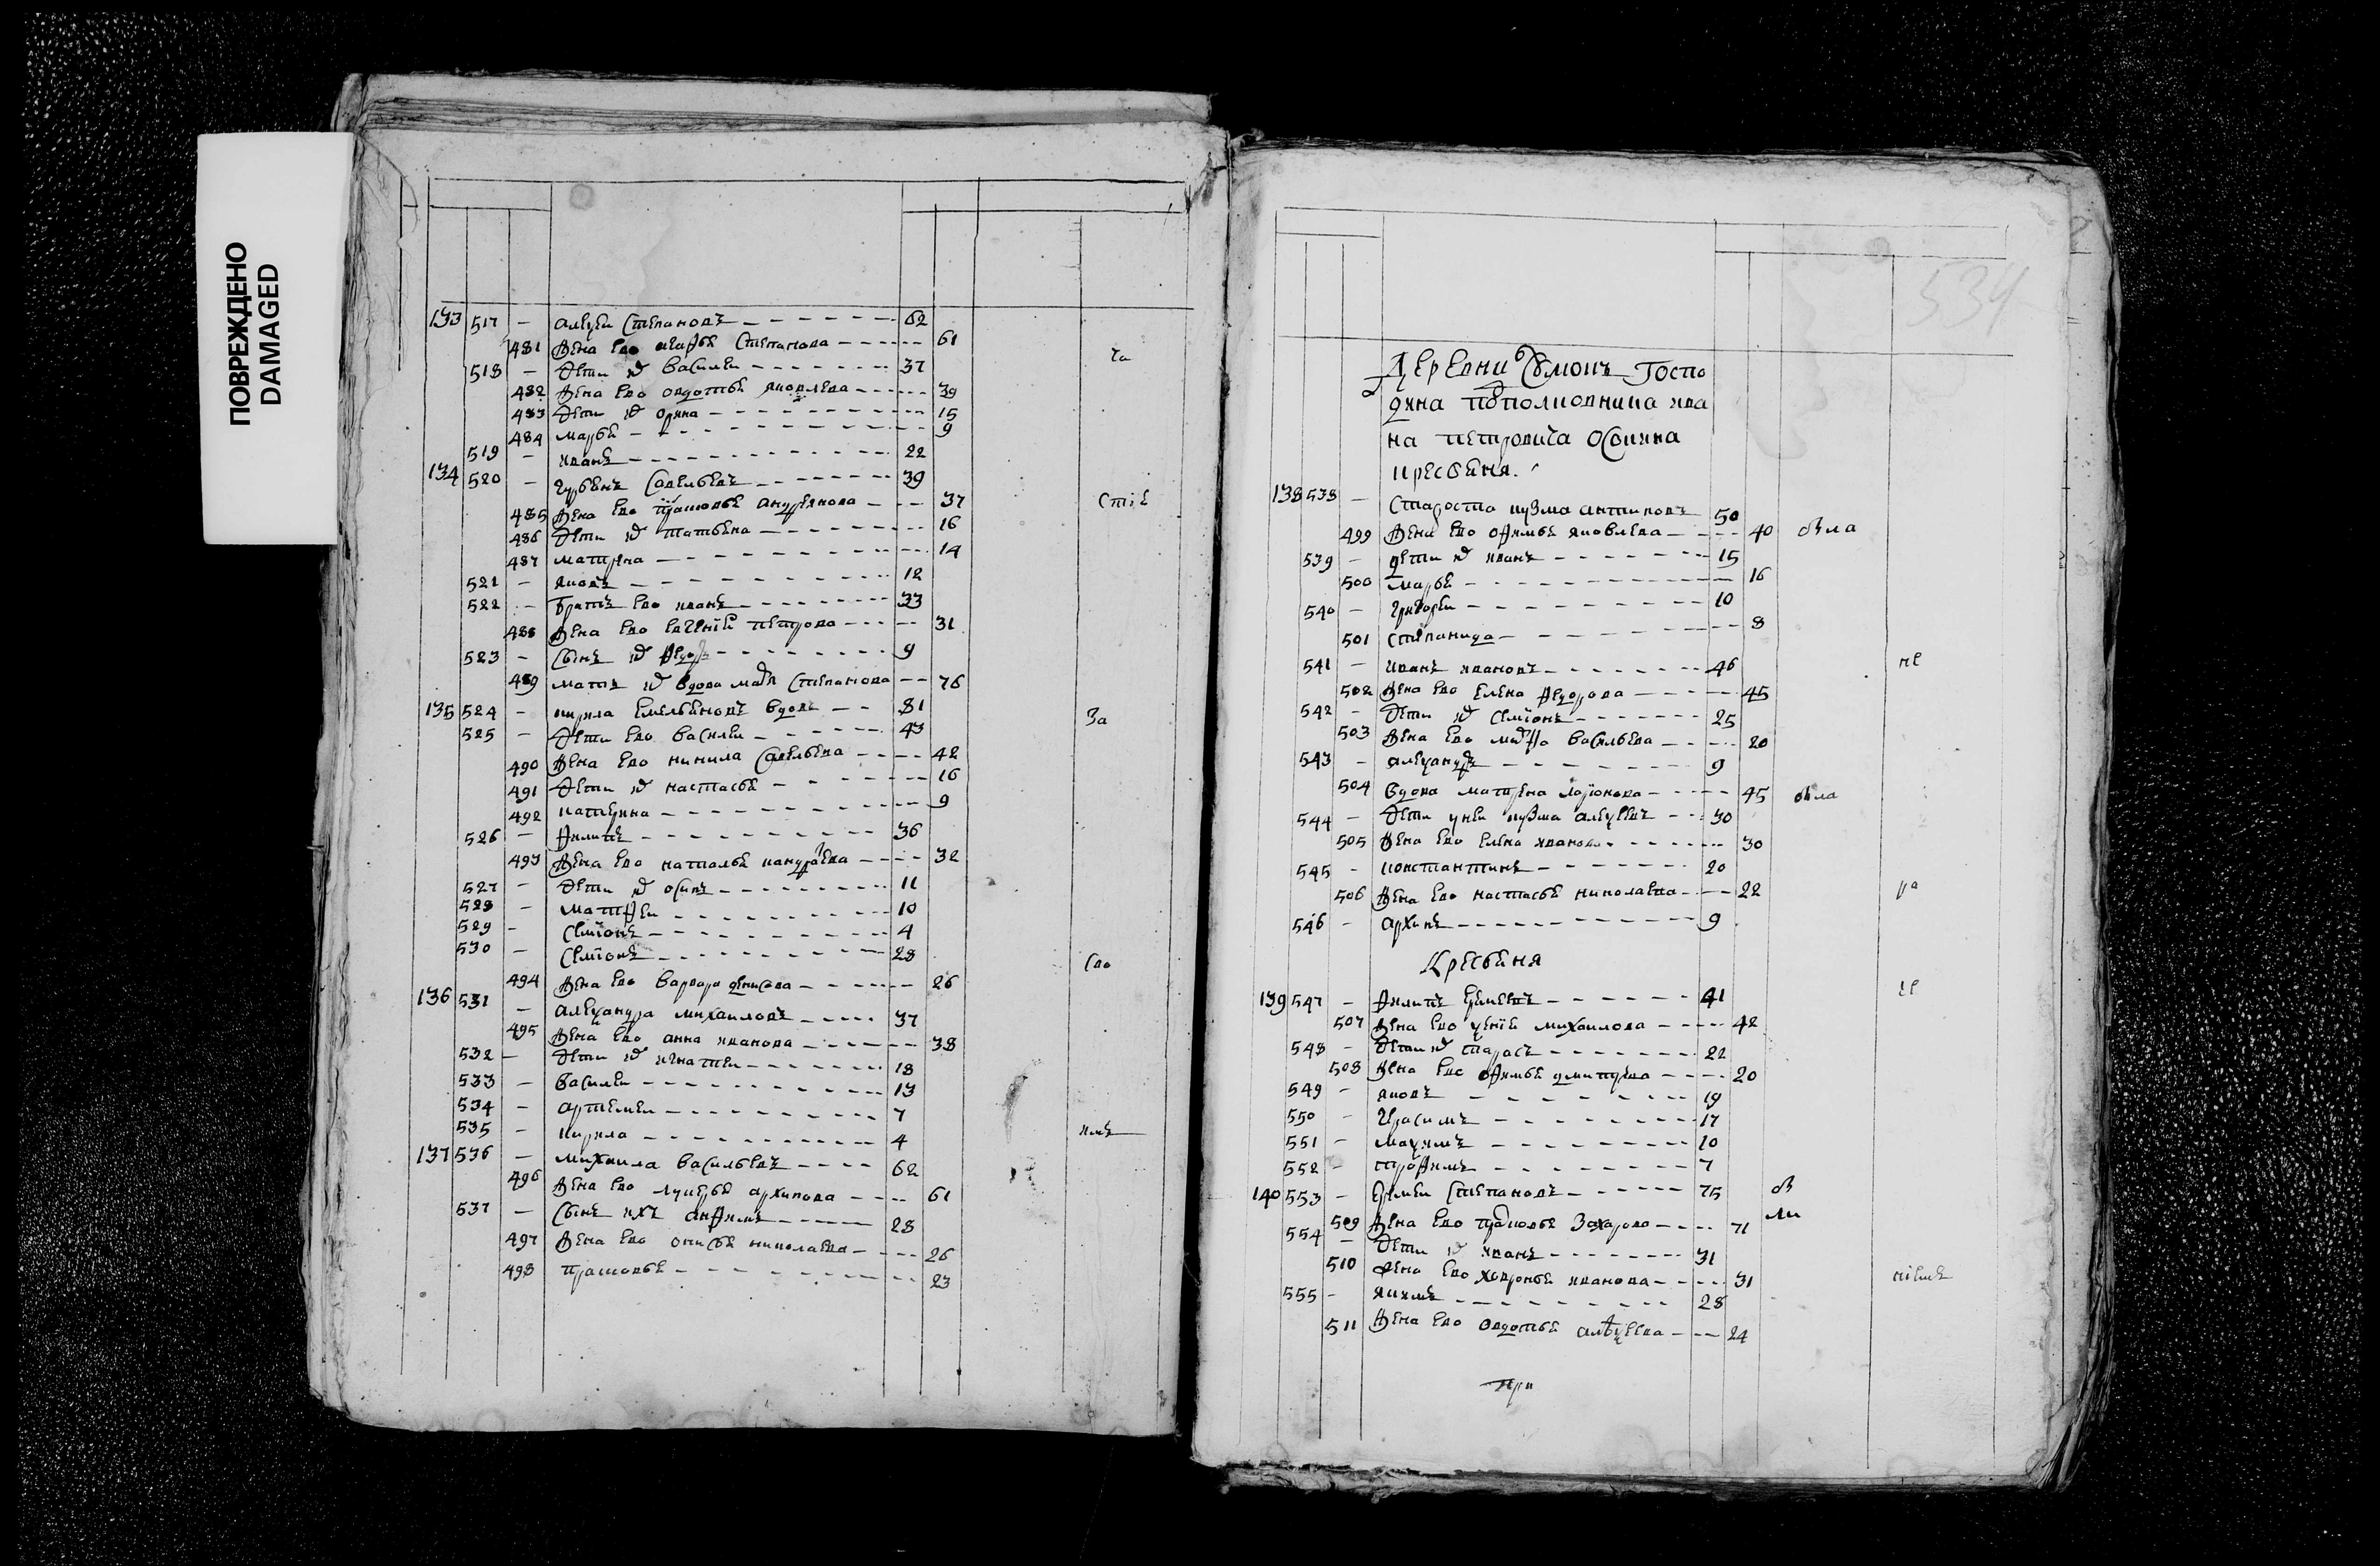 ПОВРЕЖДЕНО
DAMAGED
133 517 – алеѯеи Степановъ 62
481 жена ево марья Степанова 61
518 – дети их Василеи 37
482 жена ево овдотья яковлева 39
483 дети их орина 15
484 марья 9
519 – иванъ 22
134 520 – Савельевъ 39
485 жена ево прасковья андреянова 37
486 дети их татьяна 16
487 матрена 14
521 – яковъ 12
522 – братъ ево иванъ 33
488 жена ево евгения петрова 31
523 – сынъ их федоръ 9
489 мать их вдова Степанова 76
135 524 – кирила емельяновъ вдовъ 81
525 – дети ево василеи 43
490 жена ево никила савельева 42
491 дети их настасья 16
492 катерина 9
526 – филипъ 36
493 жена ево наталья кандратева 32
527 – дети их осипъ 11
528 – матфеи 10
529 – семионъ 4
530 – семионъ 28
494 жена ево варвара денисова 26
136 531 – алеѯандра михаиловъ 37
495 жена ево анна иванова 38
532 – дети их игнатеи 18
533 – василеи 13
534 – артемеи 7
535 – кирила 4
137 536 – михаила васильевъ 62
496 жена ево лукерья архипова 61
537 – сынъ ихъ анфимъ 28
497 жена ево онисья николаева 26
498 прасковья 23
ча
стие
За
сво
имъ
534
Деревни госпо
дина подполковника ива
на петровича освина
кресьяня.
138 538 – староста кузма антиповъ 50
499 жена ево офимья яковлева 40
539 – дети их иванъ 15
500 марья 16
540 – григореи 10
501 степанида 8
541 – иванъ ивановъ 46
502 жена ево елена федорова 45
542 – дети их семионъ 25
503 жена ево марфа васильева 20
543 – алеѯандръ 9
504 вдова матрена ларионова 45
544 – дети у неи кузма алеѯеевъ 30
505 жена ево елена иванова 30
545 – константинъ 20
506 жена ево настасья николаева 22
546 – архипъ 9
Кресьяня
139 547 – филипъ еремеевъ 41
507 жена ево ѯения михаилова 42
548 – дети их тарасъ 22
508 жена ево офимья дмитрева 20
549 – яковъ 19
550 – герасимъ 17
551 – маѯимъ 10
552 – трофимъ 7
140 553 – еремеи степановъ 75
509 жена ево прасковья захарова 71
554 – дети их иванъ 31
510 жена ево хавронья иванова 31
555 – якимъ 28
511 жена ево овдотья алеѯеева 24
была
не
была
ра
че
бы
ли
ниемъ
при